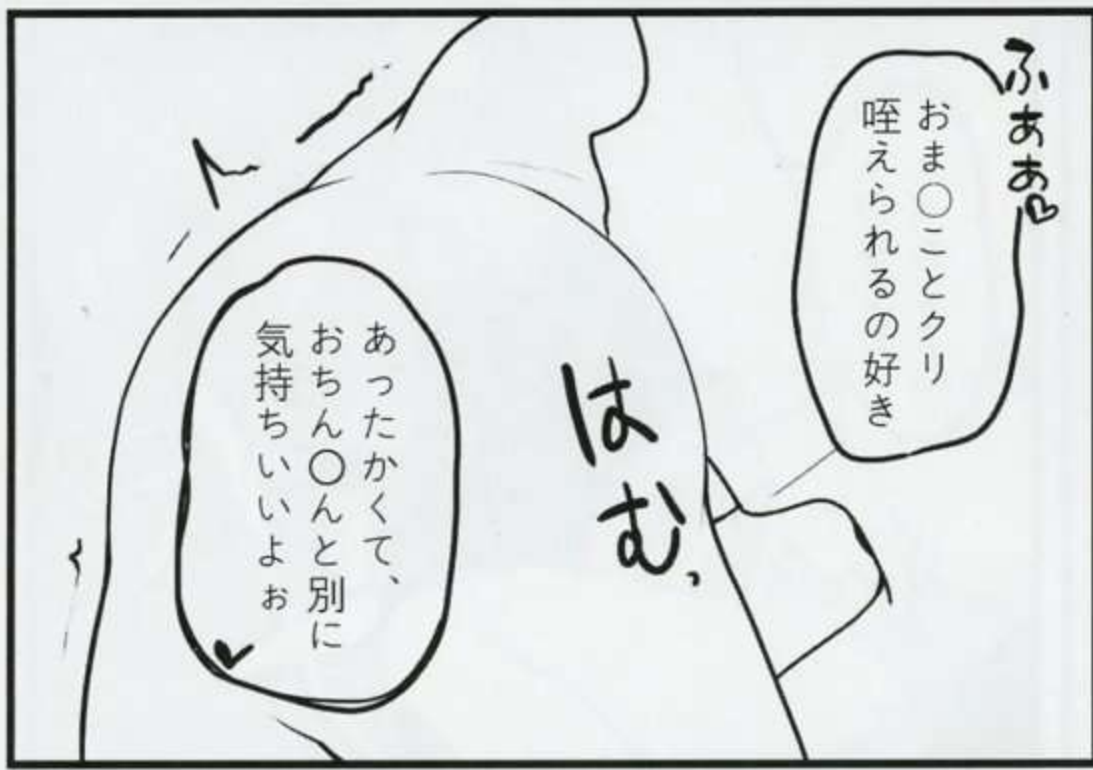 ふあぁ♡
おま〇ことクリ
咥えられるの好き
はむっ
あったかくて、
おちん〇んと別に
気持ちいいよぉ